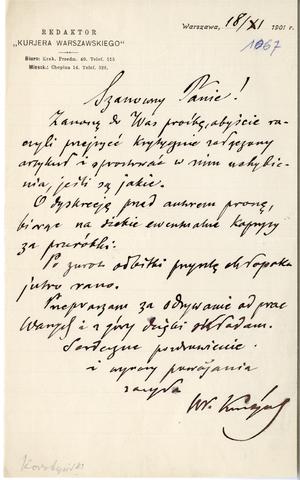 REDAKTOR
„KURJERA WARSZAWSKIEGO"
Biuro: Krak. Przedm. 40. Telef. 513
Mieszk.: Chopina 14. Telef. 328.
Warszawa, 18/XI 1901 r.
1067
Szanowny Panie!
Zanoszę do Was prośbę, abyście ra-
czyli przejrzeć krytycznie załączony
artykuł i sprostować w nim uchybie-
nia, jeśli są jakie.
O dyskrecję przed autorem proszę,
biorąc na siebie ewentualne
za przeróbki.
Po zwrot odbitki przyślę chłopaka
jutro rano.
Przepraszam za odrywanie od prac
Waszych i z góry dzięki składam.
Serdeczne pozdrowienie
i wyrazy poważania